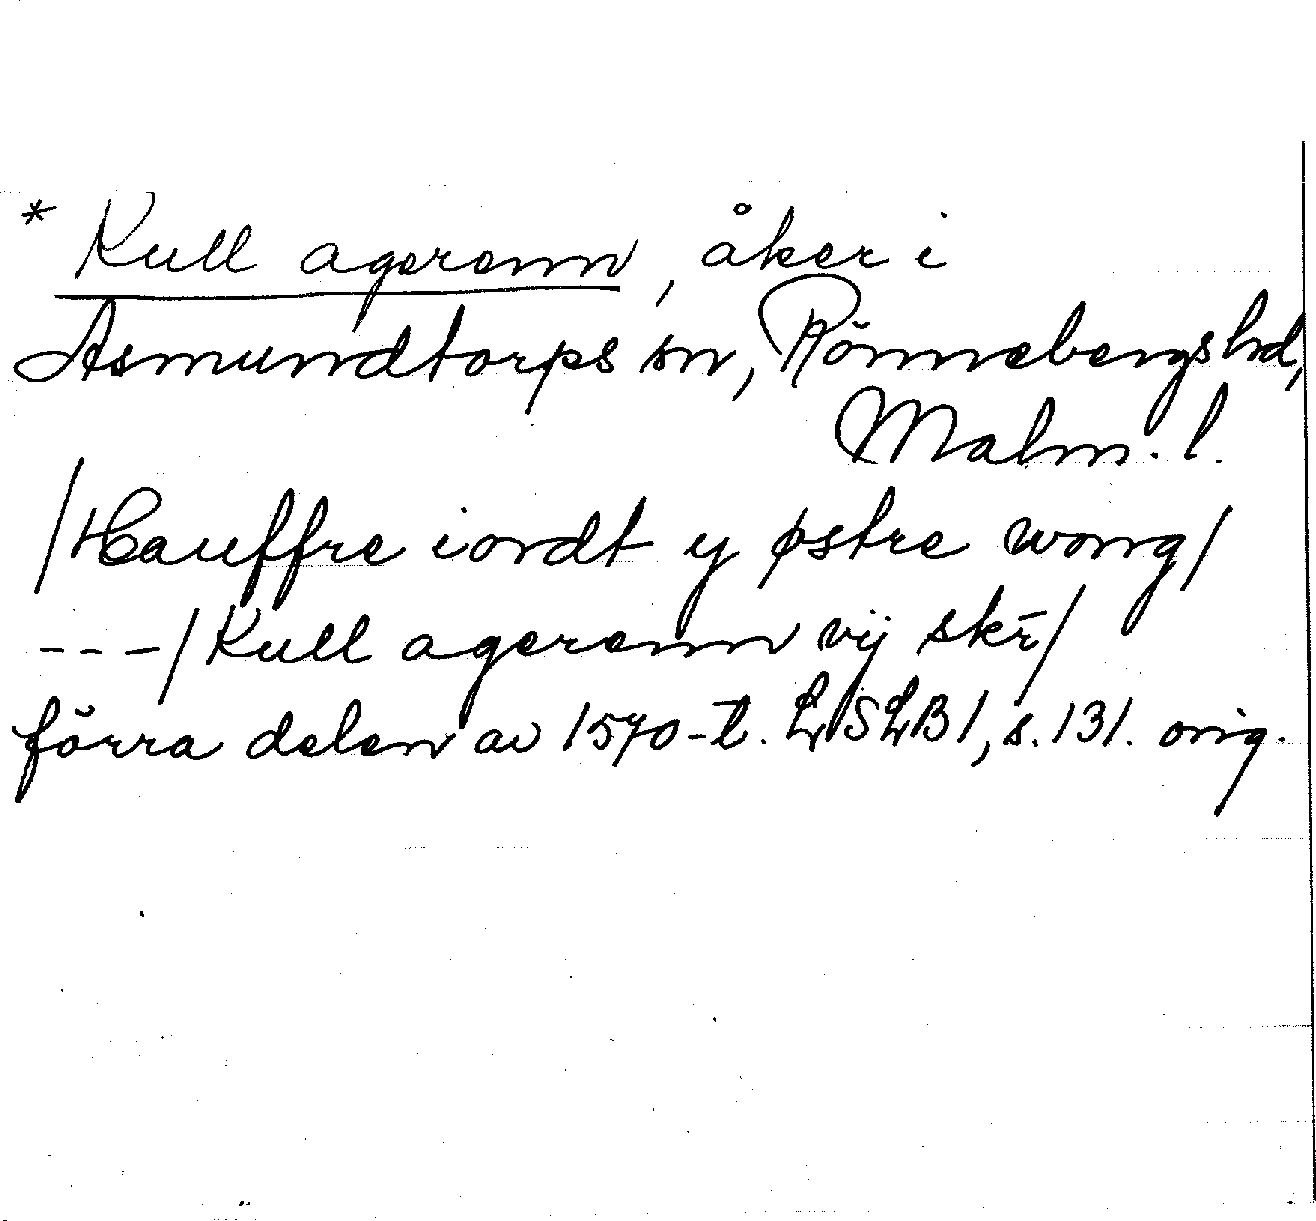 * Kull agerenn, åker i
Asmundtorps sn, Rönnebergs hd,
Malm. l.
/Hauffre iordt y østre wong/
---/Kull agerenn vij skr̄/
förra delen av 1570-t. LSLB1, s. 131. orig.